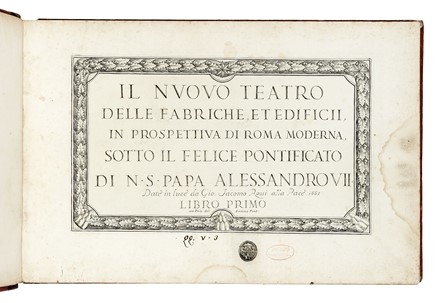 IL NVOVO TEATRO
DELLE FABRICHE, ET EDIFICII,
IN PROSPETTIVA DI ROMA MODERNA,
SOTTO IL FELICE PONTIFICATO
DI N·S·PAPA ALESSANDRO VII
Date in luce da Gio. Iacomo Rossi alla Pace
LIBRO PRIMO